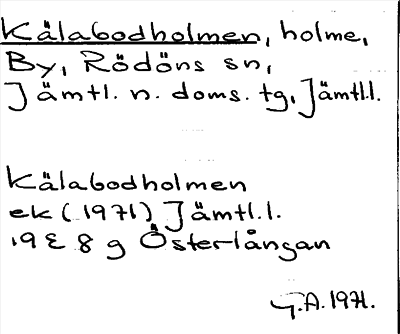 Kälabodholmen, holme,
By, Rödöns sn,
Jämtl. n. doms. tg, Jämtl.l.
Kälabodholmen
ek (1971) Jämtl.l.
19 E 8 g Österlångan
G.A. 1971.